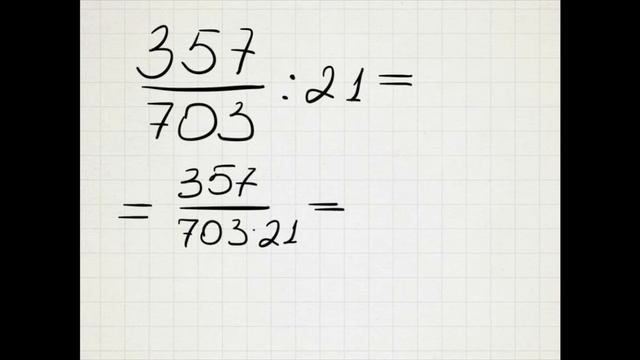 357/703 : 21 =
= 357/703·21 =